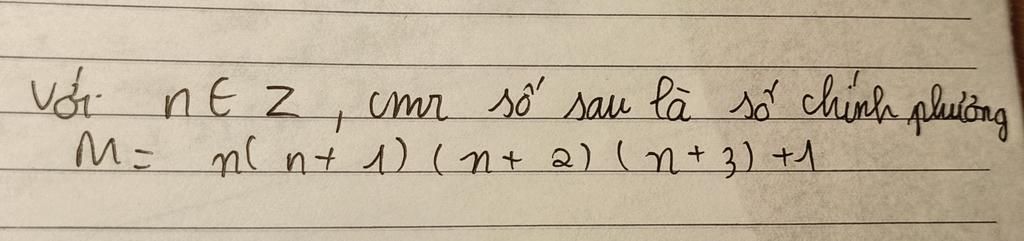 Với n ∈ Z, cmr số sau là số chính phương
M = n(n + 1)(n + 2)(n + 3) + 1